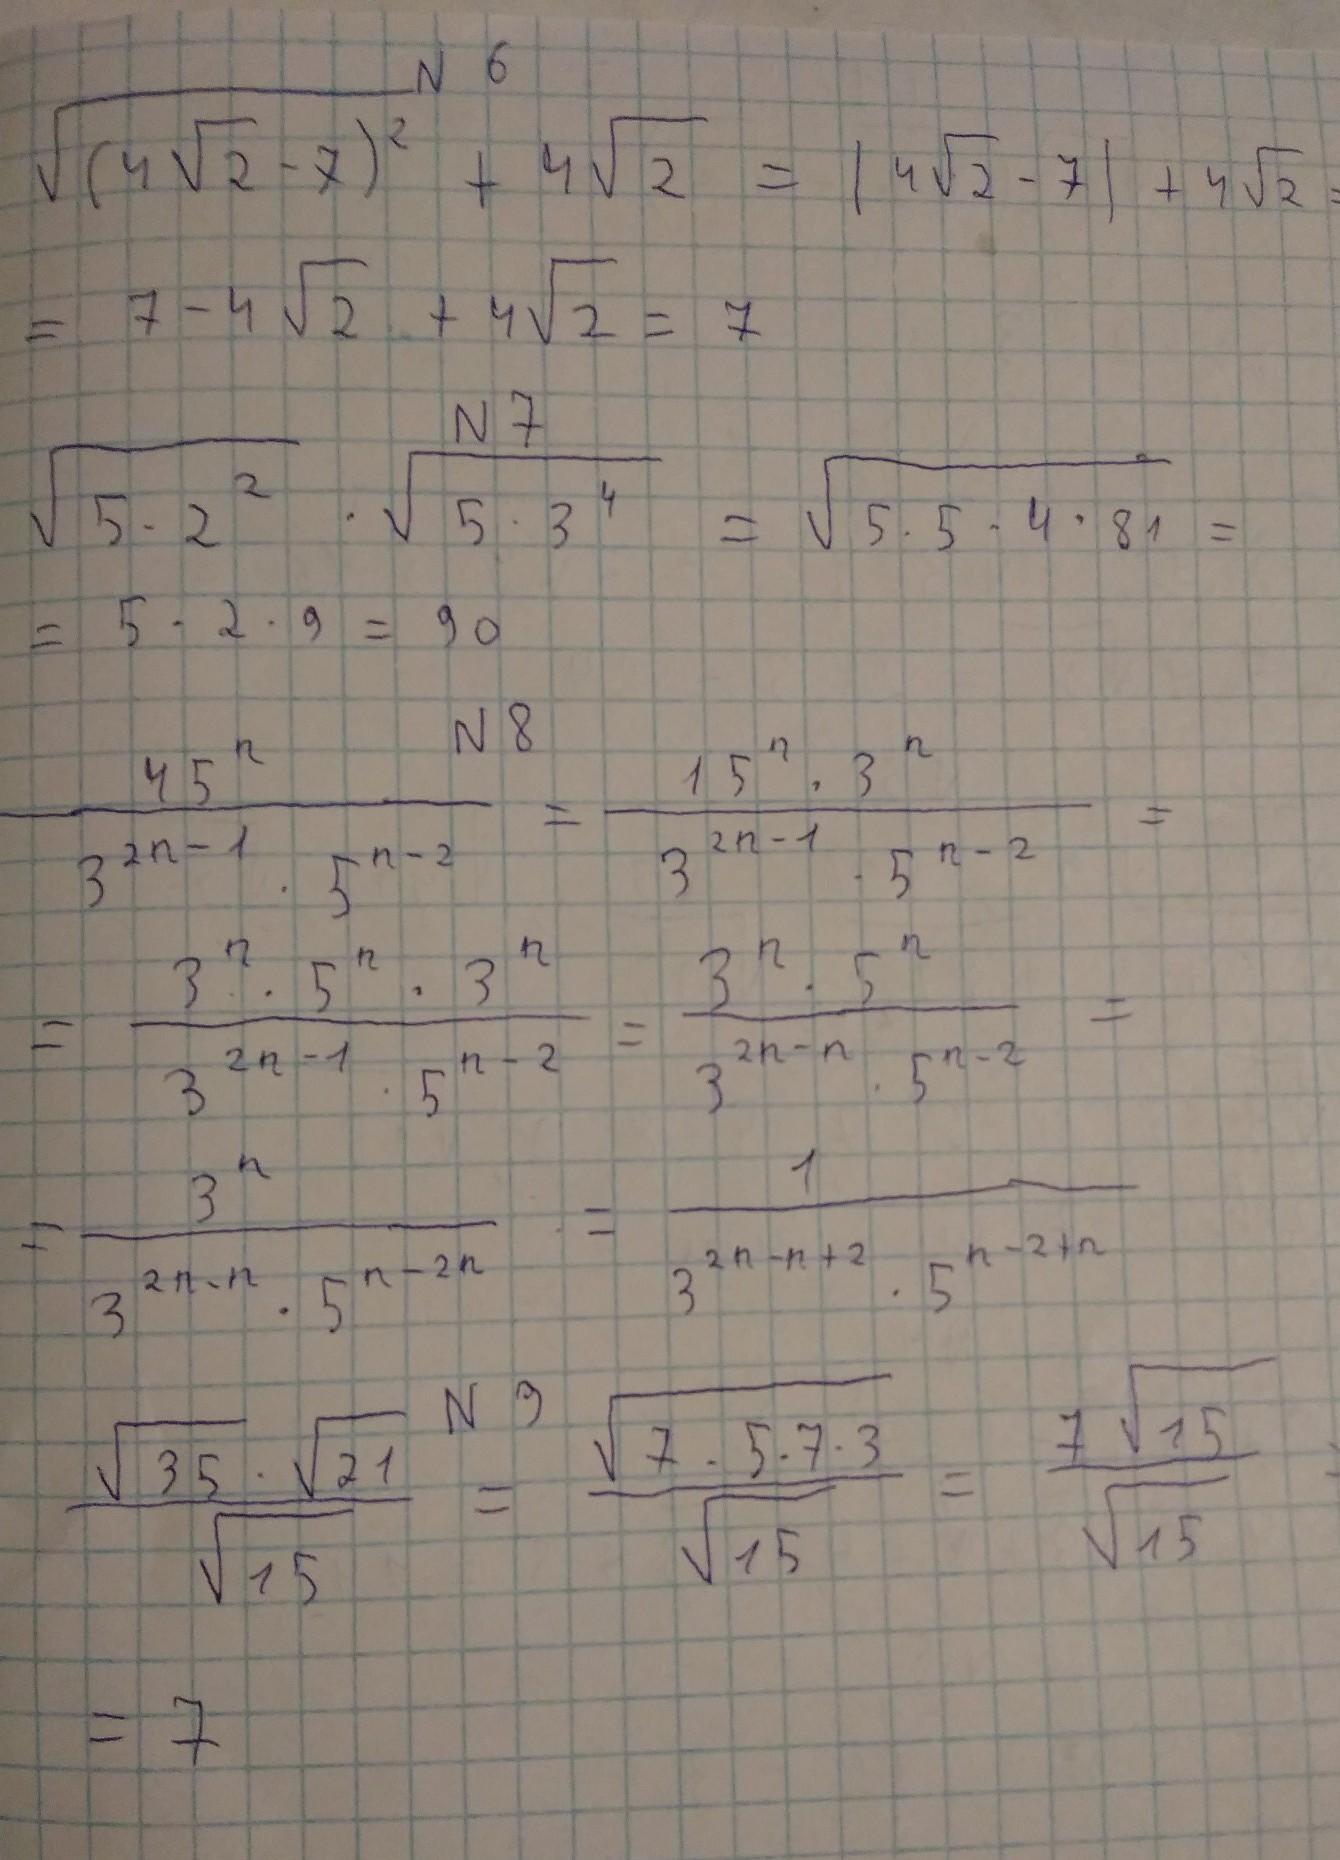 N 6
√((4√2 - 7)²) + 4√2 = |4√2 - 7| + 4√2 =
= 7 - 4√2 + 4√2 = 7
N 7
√(5 · 2²) · √(5 · 3⁴) = √(5 · 5 · 4 · 81) =
= 5 · 2 · 9 = 90
N 8
45^n / (3^(2n-1) · 5^(n-2)) = (15^n · 3^n) / (3^(2n-1) · 5^(n-2)) =
= (3^n · 5^n · 3^n) / (3^(2n-1) · 5^(n-2)) = (3^n · 5^n) / (3^(2n-n) · 5^(n-2)) =
= 3^n / (3^(2n-n) · 5^(n-2n)) = 1 / (3^(2n-n+2) · 5^(n-2+n))
N 9
(√35 · √21) / √15 = √(7 · 5 · 7 · 3) / √15 = 7√15 / √15 =
= 7